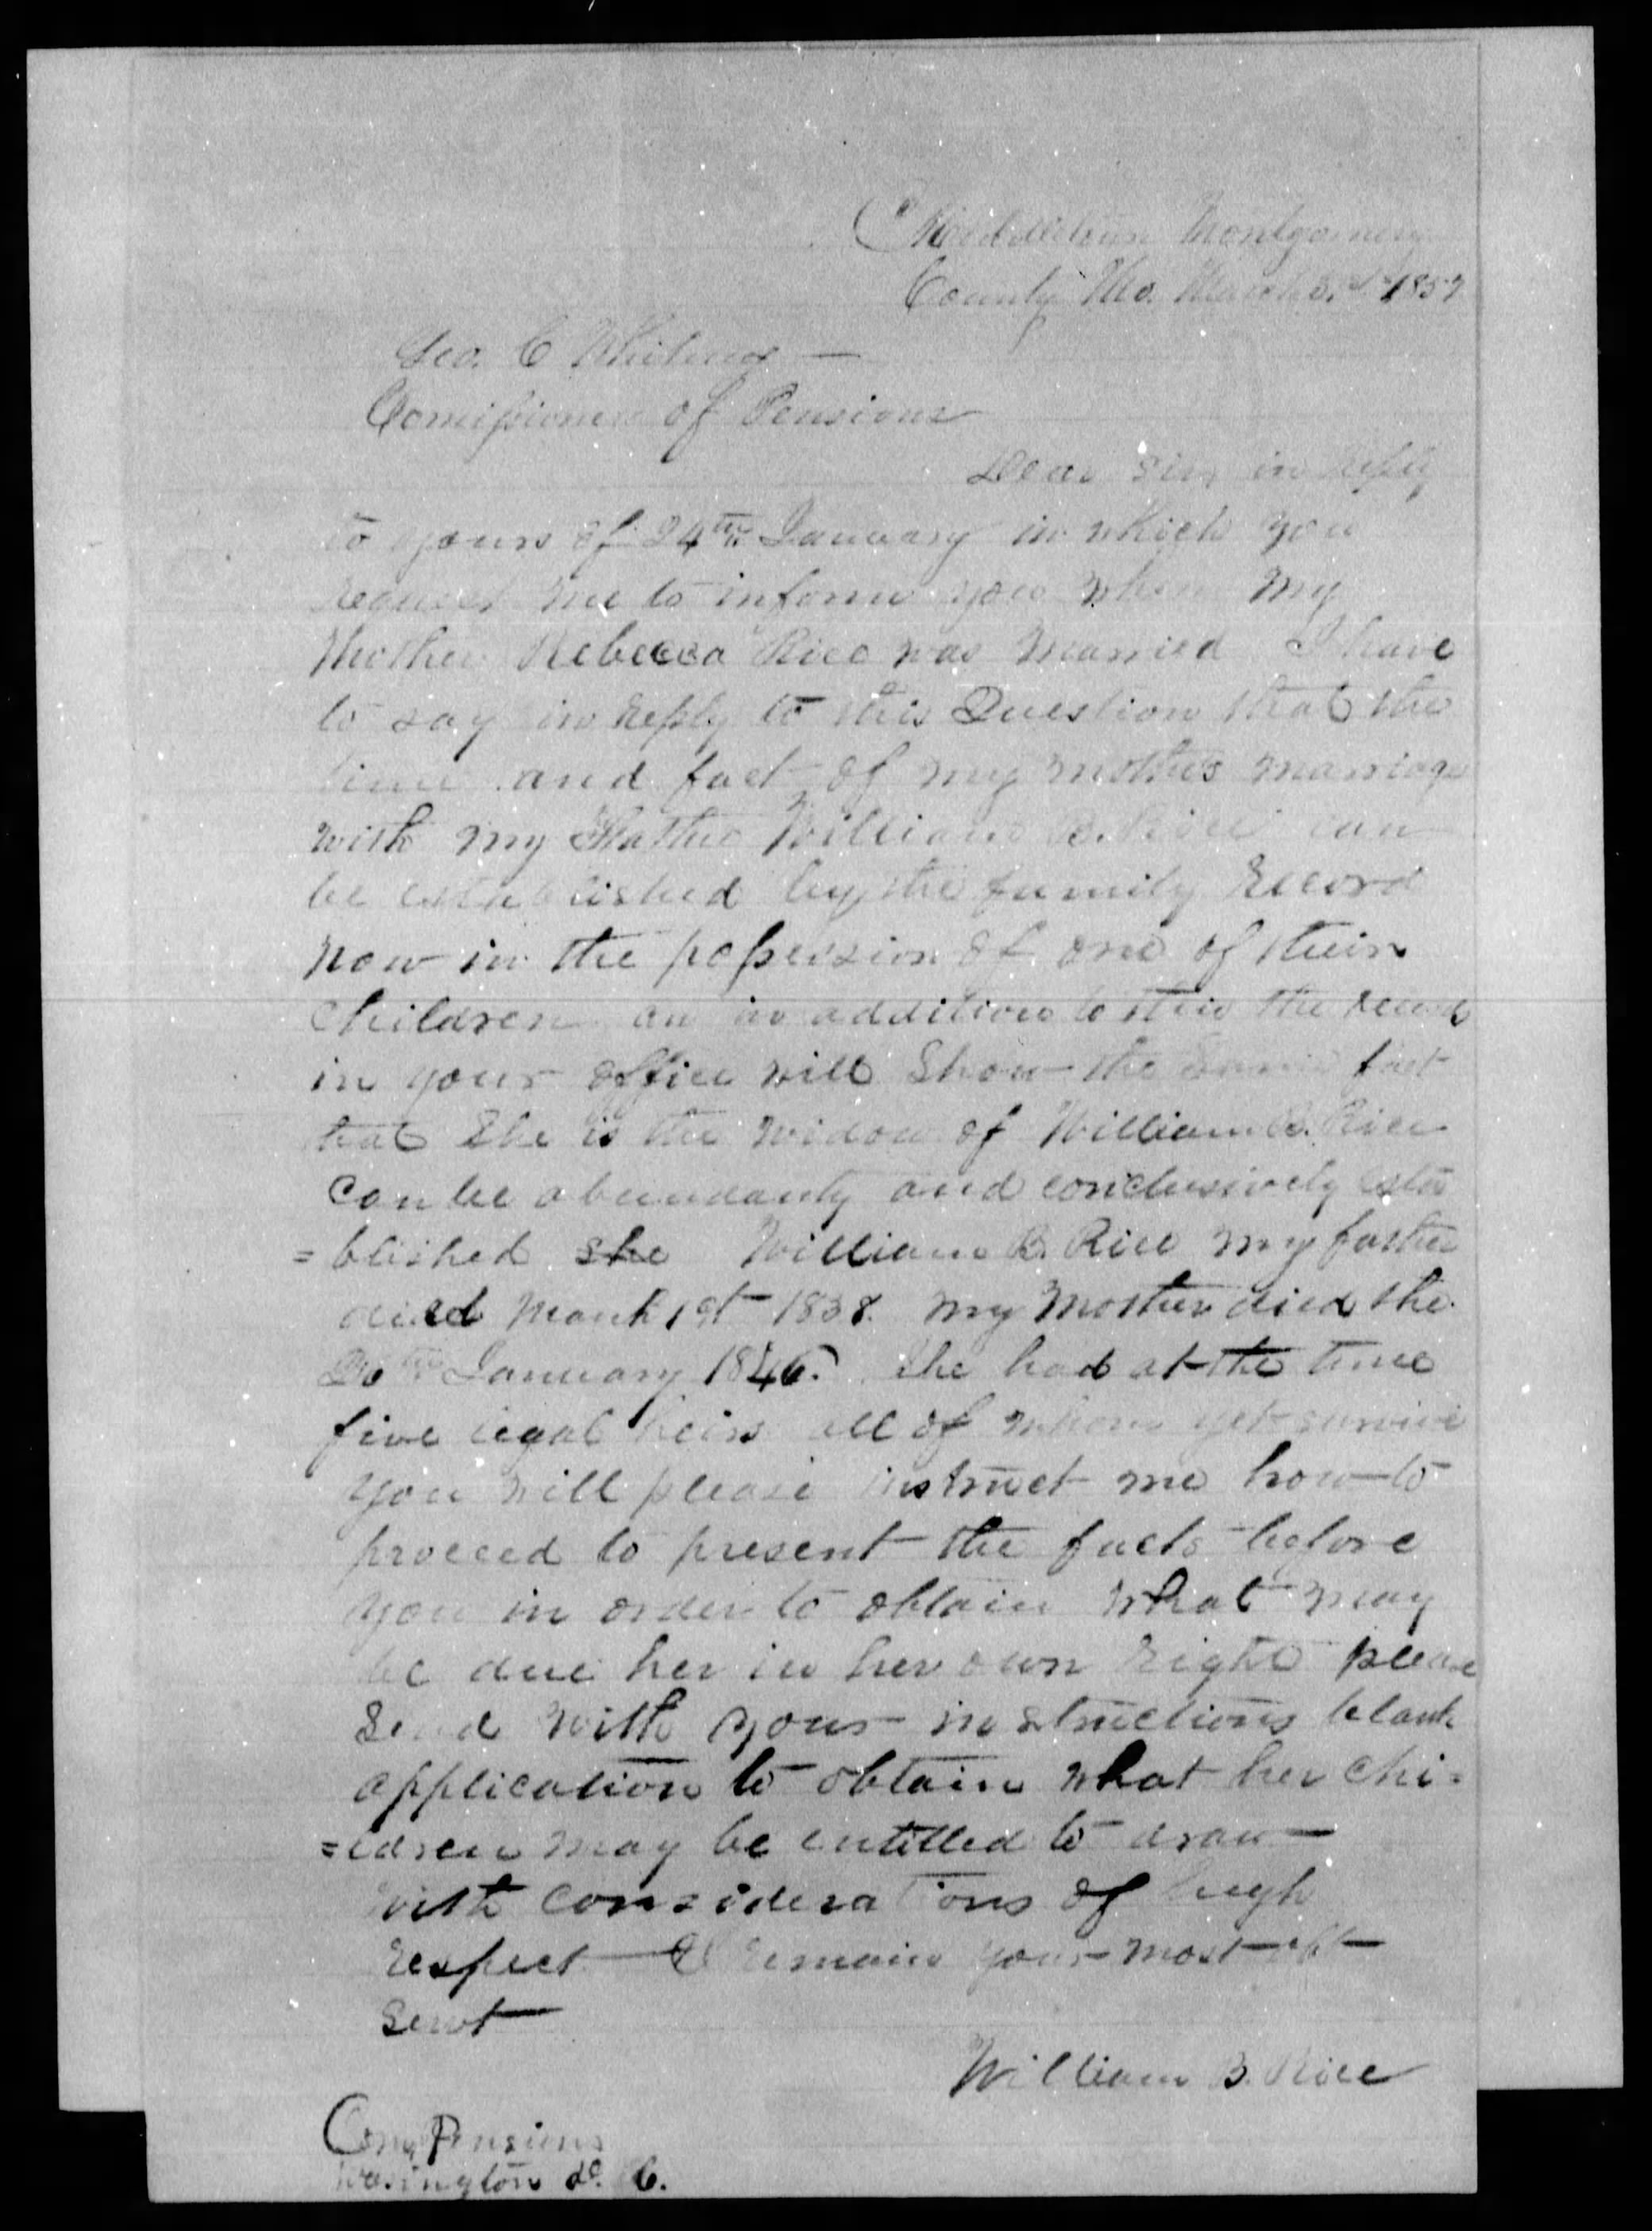 Middletown Montgomery
County Mo. March 3rd 1857
Geo. C Whiting —
Comissioner of Pensions
Dear Sir, in reply
to yours of 24th January in which you
request me to inform you when my
Mother Rebecca Rice was married I have
to say in reply to this Question that the
time and fact of my mothers marriage
with my Father William B. Rice can
be established by the family Record
now in the possession of one of their
children an in addition to this the records
in your office will Show the same fact
that She is the widow of William B. Rice
can be abundantly and conclusively esta
=blished she William B. Rice my father
died March 1st 1838. my Mother died the
20th January 1846. She had at the time
five legal heirs all of whom yet survive
you will please instruct me how to
proceed to present the facts before
you in order to obtain what may
be due her in her own right please
Send with your instructions blank
application to obtain what her chi=
=ldren may be entitled to draw
with considerations of high
respect — I remain your most obt
Servt
William B. Rice
Com. Pensions
Wasington D. C.